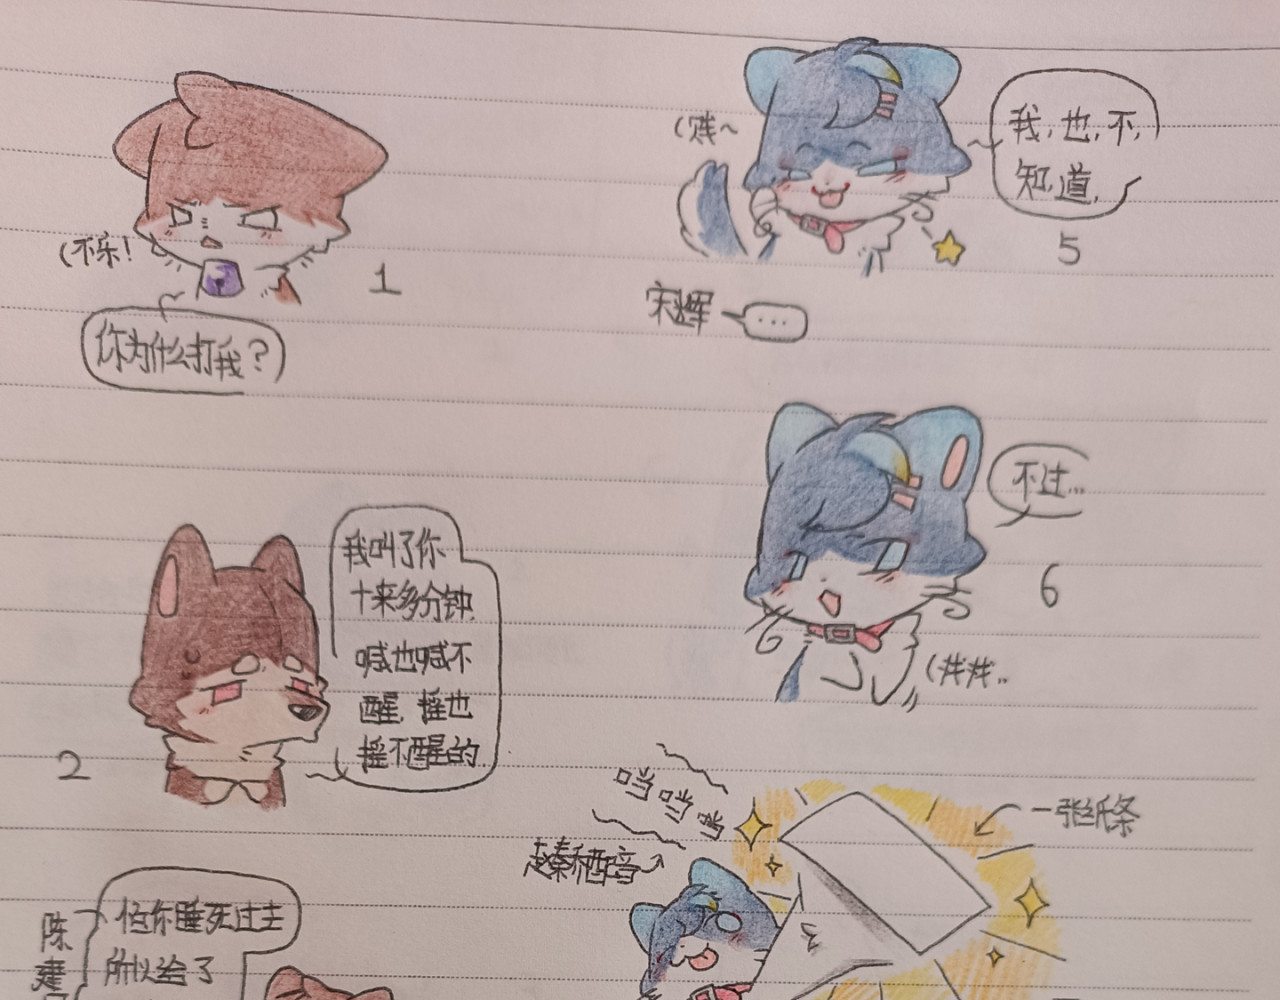 (不乐!
1
你为什么打我?
我叫了你
十来多分钟,
喊也喊不
醒,摇也
摇不醒的
2
陈
建
怕你睡死过去
所以给了
(贱~
我,也,不,
知,道,
5
宋辉
...
不过...
6
当当当
配音
一张纸条